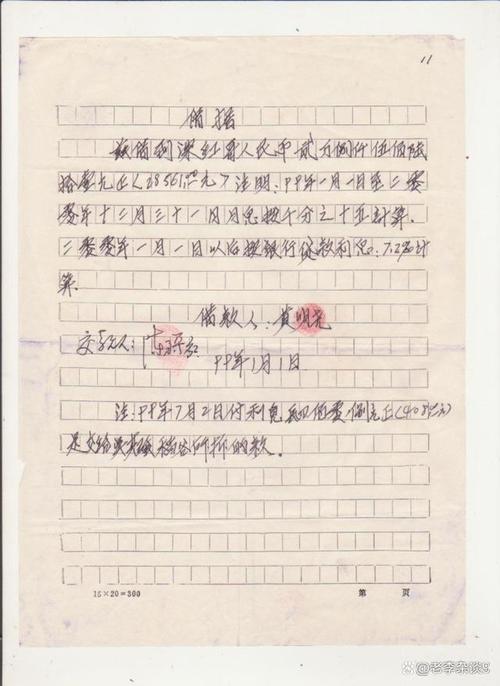 11
借据
兹借到梁红军人民币贰万捌仟伍佰陆
拾壹元正(28561.00元)注明:99年一月一日至二零
零零年十二月三十一日月息按千分之十五计算.
二零零零年一月一日以后按银行贷款利息:7.2‰计
算.
借款人:黄明光
交款人:
99年1月1日
注:99年7月2日付利息 正(408元)
是交给 的款。
15×20=300
第 页
@老李杂谈S